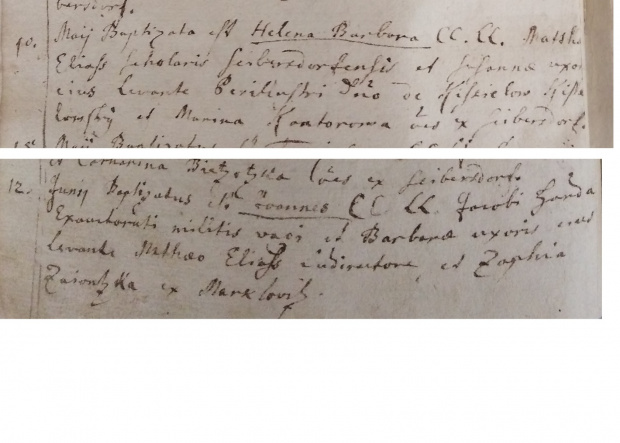 bersdorf.
10. Maij Baptizata est Helena Barbara CC. LL. Matth
Eliass Scholaris Seibersdorfensis et Susannæ uxor
eius Levante Perillustri Dno de Kisielow Kisie
lowsky et Marina Kantorowa ex Seibersdorf.
Maij Baptizatus
et Catharina ex Seibersdorf.
12. Junij Baptizatus est Joannes CC LL Jacobi Handa
Exauctorati militis vaci et Barbaræ uxoris eius
Levante Mathæo Eliass Ludirectore et Zophia
Zaiontzka ex Marklovitz.